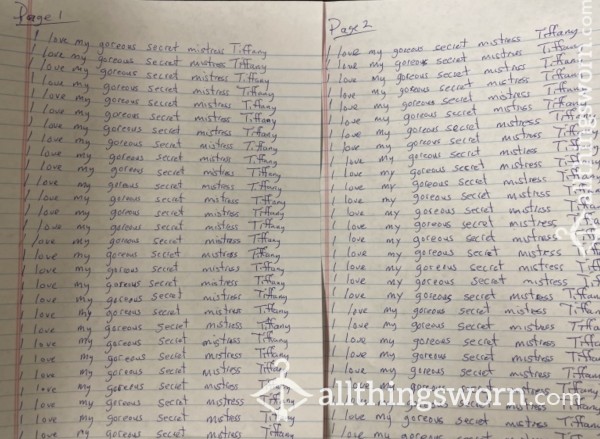 Page 1
I love my goreous secret mistress Tiffany
I love my goreous secret mistress Tiffany
I love my goreous secret mistress Tiffany
I love my goreous secret mistress Tiffany
I love my goreous secret mistress Tiffany
I love my goreous secret mistress Tiffany
I love my goreous secret mistress Tiffany
I love my goreous secret mistress Tiffany
I love my goreous secret mistress Tiffany
I love my goreous secret mistress Tiffany
I love my goreous secret mistress Tiffany
I love my goreous secret mistress Tiffany
I love my goreous secret mistress Tiffany
I love my goreous secret mistress Tiffany
I love my goreous secret mistress Tiffany
I love my goreous secret mistress Tiffany
I love my goreous secret mistress Tiffany
I love my goreous secret mistress Tiffany
I love my goreous secret mistress Tiffany
I love my goreous secret mistress Tiffany
I love my goreous secret mistress Tiffany
I love my goreous secret mistress Tiffany
I love my goreous secret mistress Tiffany
I love my goreous secret mistress Tiffany
I love my goreous secret mistress Tiffany
I love my goreous secret mistress
I love my goreous secret mistress
I love my goreous secret mistress Tiffany
Page 2
I love my goreous secret mistress Tiffany
I love my goreous secret mistress Tiffany
I love my goreous secret mistress Tiffany
I love my goreous secret mistress Tiffany
I love my goreous secret mistress Tiffany
I love my goreous secret mistress Tiffany
I love my goreous secret mistress Tiffany
I love my goreous secret mistress Tiffany
I love my goreous secret mistress Tiffany
I love my goreous secret mistress Tiffany
I love my goreous secret mistress Tiffany
I love my goreous secret mistress Tiffany
I love my goreous secret mistress Tiffany
I love my goreous secret mistress Tiffany
I love my goreous secret mistress Tiffany
I love my goreous secret mistress Tiffany
I love my goreous secret mistress Tiffany
I love my goreous secret mistress Tiffany
I love my goreous secret mistress Tiffany
I love my goreous secret mistress Tiffany
I love my goreous secret mistress Tiffany
I love my goreous secret mistress Tiffany
I love my goreous secret mistress Tiffany
I love my goreous secret mistress Tiffany
I love my goreous secret mistress Tiffany
I love my goreous secret mistress Tiffany
I love my goreous secret mistress
I love my goreous secret mistress Tiffany
I love my goreous secret mistress Tiffany
allthingsworn.com
allthingsworn.com